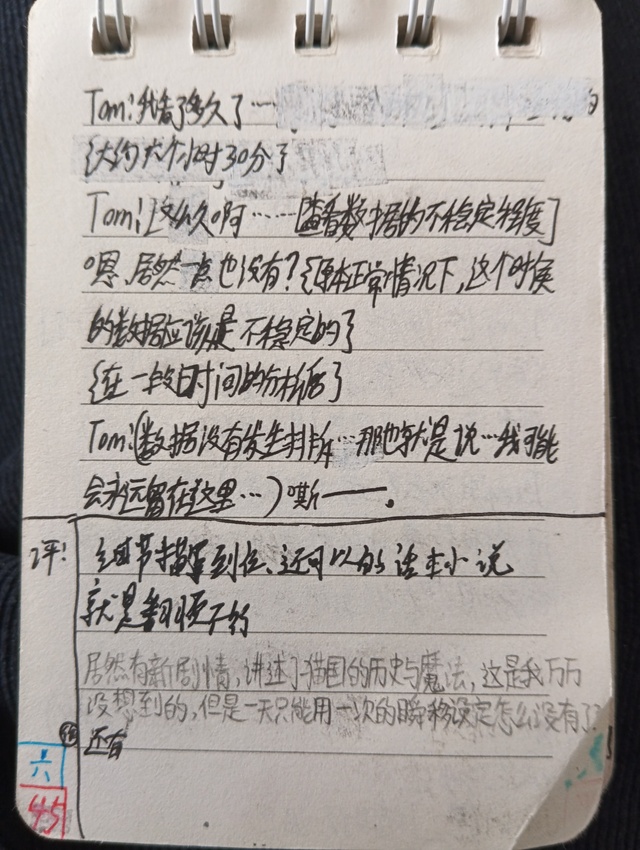 Tom:我看了多久了…
{大约六个小时30分}
Tom:这么久啊……[查看数据的不稳定程度]
嗯,居然一点也没有?{原本正常情况下,这个时候
的数据应该是不稳定的}
{在一段时间的分析后}
Tom:(数据没有发生排斥…那也就是说…我可能
会永远留在这里…)嘶——.
评:
细节描写到位、还可以的话本小说
就是翻顺不的
居然有新剧情,讲述了猫国的历史与魔法,这是我万万
没想到的,但是一天只能用一次的瞬移设定怎么没有了?
还有
六
45